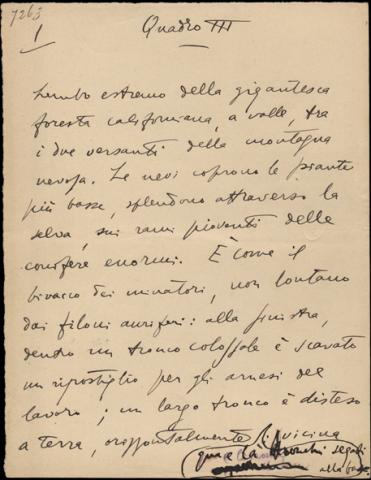 7263
1
Quadro III
Lembo estremo della gigantesca
foresta californiana, a valle, tra
i due versanti della montagna
nevosa. Le nevi coprono le piante
più basse, splendono attraverso la
selva, sui rami pioventi delle
conifere enormi. È come il
bivacco dei minatori, non lontano
dai filoni auriferi: alla sinistra,
dentro un tronco colossale è scavato
un ripostiglio per gli arnesi del
lavoro; un largo tronco è disteso
a terra, orizzontalmente lì vicino
qua e là tronchi segati
alla base.